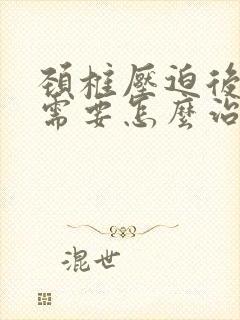 頸椎壓迫後
需要怎麼治
混世